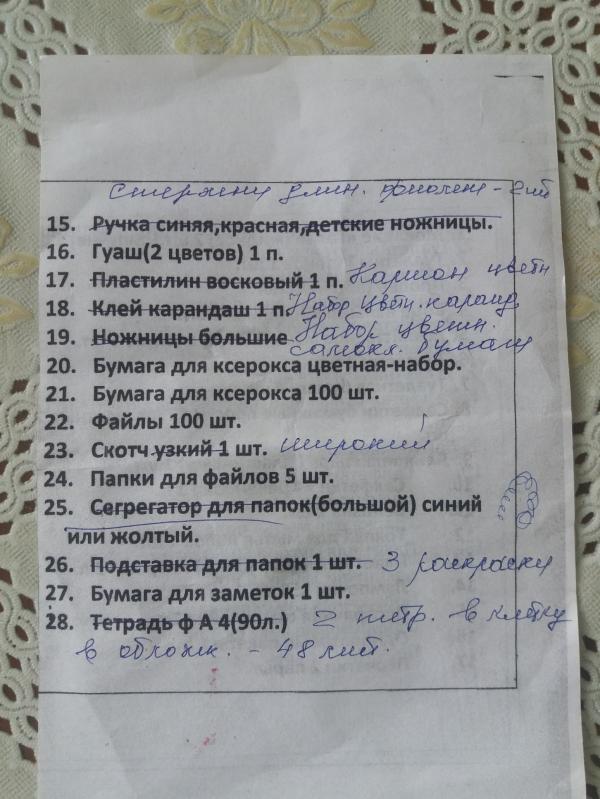 стержени длин. фиолет - 2 шт
15. Ручка синяя,красная,детские ножницы.
16. Гуаш(2 цветов) 1 п.
17. Пластилин восковый 1 п. Картон цветн
18. Клей карандаш 1 п Набор цветн. каранд
19. Ножницы большие Набор цветн.
самокл. бумаги
20. Бумага для ксерокса цветная-набор.
21. Бумага для ксерокса 100 шт.
22. Файлы 100 шт.
23. Скотч узкий 1 шт. широкий
24. Папки для файлов 5 шт.
25. Сегрегатор для папок(большой) синий
или жолтый.
26. Подставка для папок 1 шт. 3 раскраски
27. Бумага для заметок 1 шт.
28. Тетрадь ф А 4(90л.) 2 тетр. в клетку
в облож. - 48 лист.